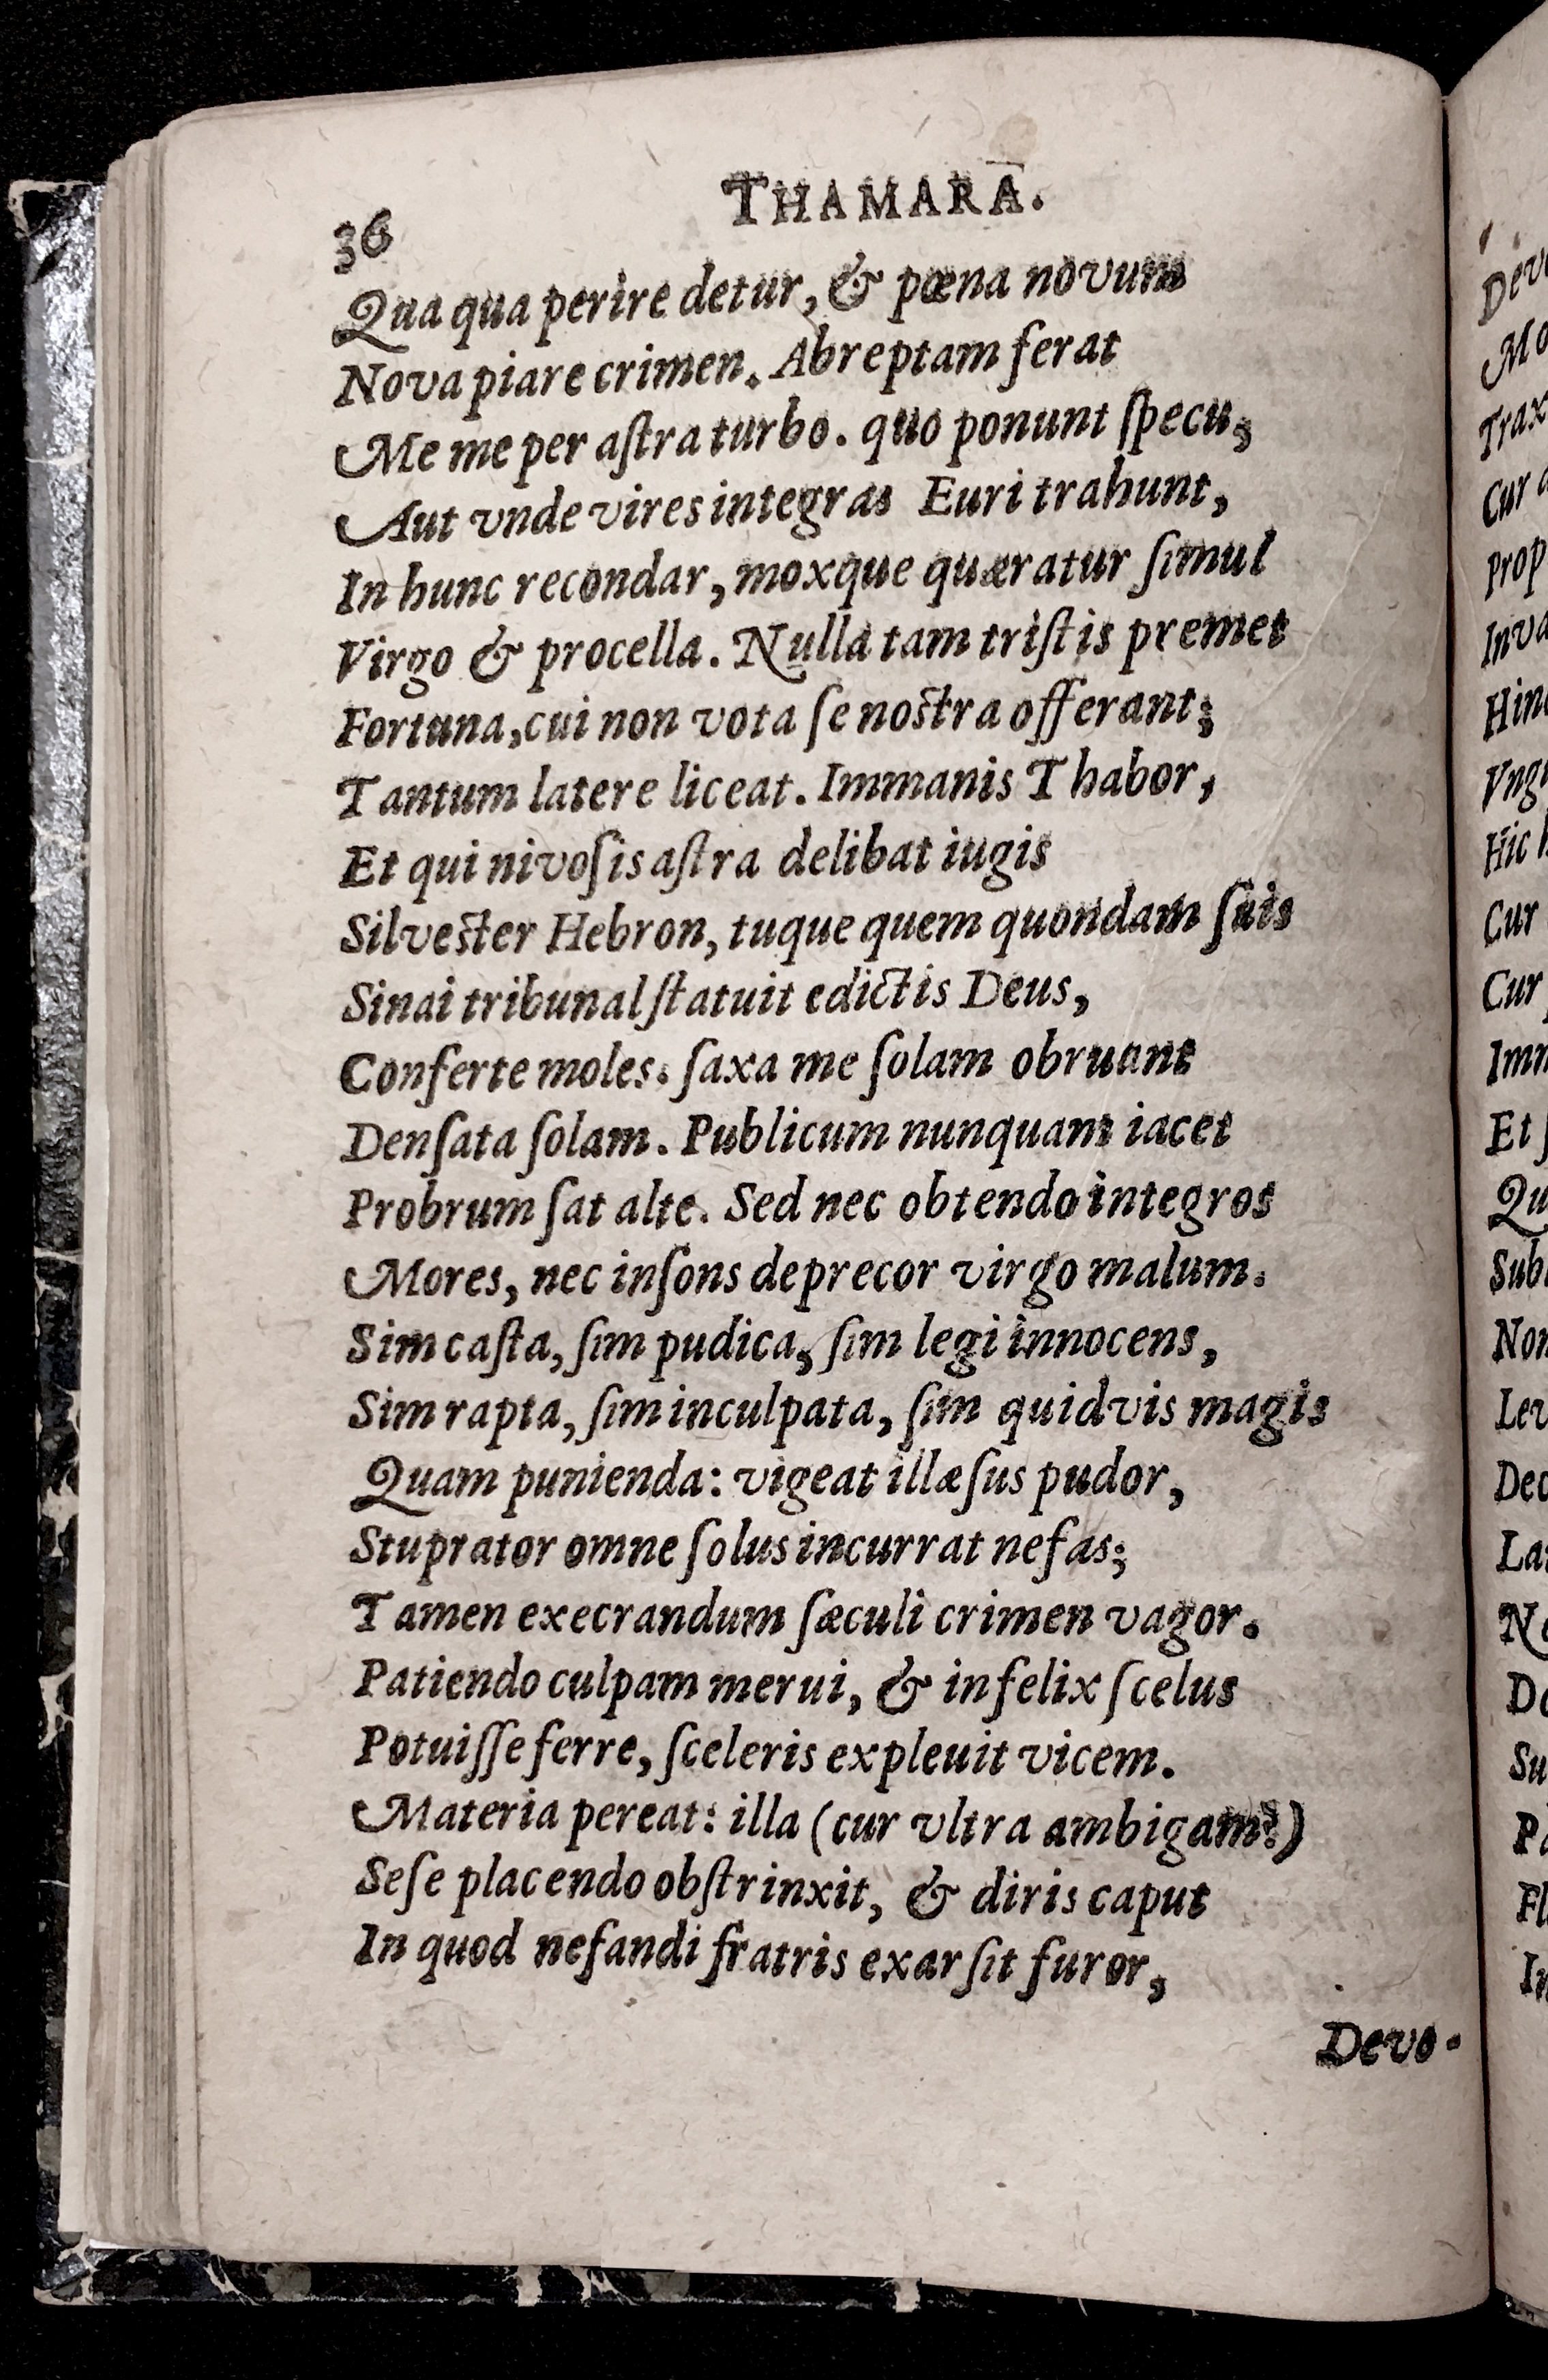 36
THAMARA.
Qua qua perire detur, & pœna novum
Nova piare crimen. Abreptam ferat
Me me per aſtra turbo. quo ponunt ſpecu,
Aut vnde vires integras Euri trahunt,
In hunc recondar, moxque quæratur ſimul
Virgo & procella. Nulla tam triſtis premet
Fortuna, cui non vota ſe noſtra offerant;
Tantum latere liceat. Immanis Thabor,
Et qui nivoſis aſtra delibat iugis
Silveſter Hebron, tuque quem quondam ſuis
Sinai tribunal ſtatuit edictis Deus,
Conferte moles. ſaxa me ſolam obruant
Denſata ſolam. Publicum nunquam iacet
Probrum ſat alte. Sed nec obtendo integros
Mores, nec inſons deprecor virgo malum.
Sim caſta, ſim pudica, ſim legi innocens,
Sim rapta, ſim inculpata, ſim quidvis magis
Quam punienda: vigeat illæſus pudor,
Stuprator omne ſolus incurrat nefas;
Tamen execrandum ſæculi crimen vagor.
Patiendo culpam merui, & infelix ſcelus
Potuiſſe ferre, ſceleris expleuit vicem.
Materia pereat: illa (cur vltra ambigam?)
Seſe placendo obſtrinxit, & diris caput
In quod nefandi fratris exarſit furor,
Devo-